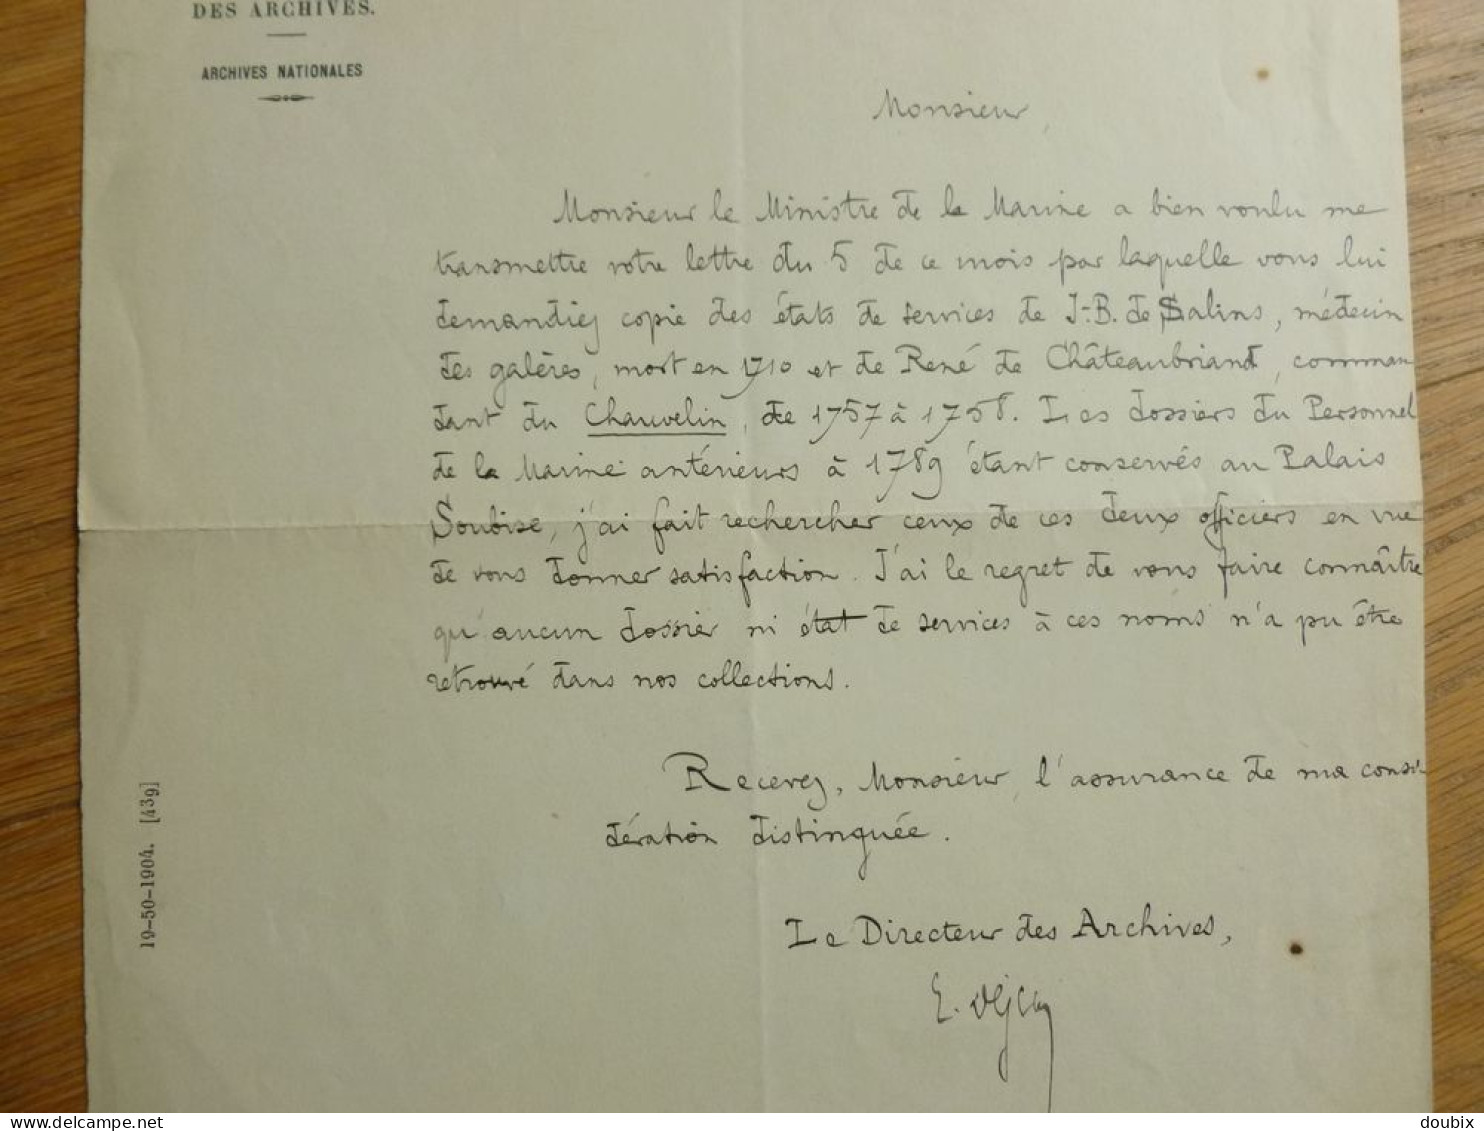 DES ARCHIVES.
ARCHIVES NATIONALES
Monsieur,
Monsieur le Ministre de la Marine a bien voulu me
transmettre votre lettre du 5 de ce mois par laquelle vous lui
demandiez copie des états de services de J.-B. de Salins, médecin
des galères, mort en 1710 et de René de Châteaubriand, comman
dant du Chauvelin, de 1757 à 1758. Les dossiers du Personnel
de la Marine antérieurs à 1789 étant conservés au Palais
Soubise, j'ai fait rechercher ceux de ces deux officiers en vue
de vous donner satisfaction. J'ai le regret de vous faire connaître
qu'aucun dossier ni état de services à ces noms n'a pu être
retrouvé dans nos collections.
Recevez, Monsieur, l'assurance de ma consi
dération distinguée.
Le Directeur des Archives,
E.
19-50-1904. [439]
delcampe.net
doubix